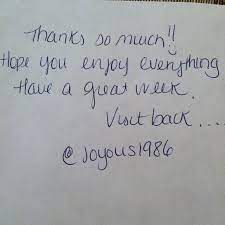 Thanks so much!!
Hope you enjoy everything
Have a great week.
Visit back....
@Joyous1986